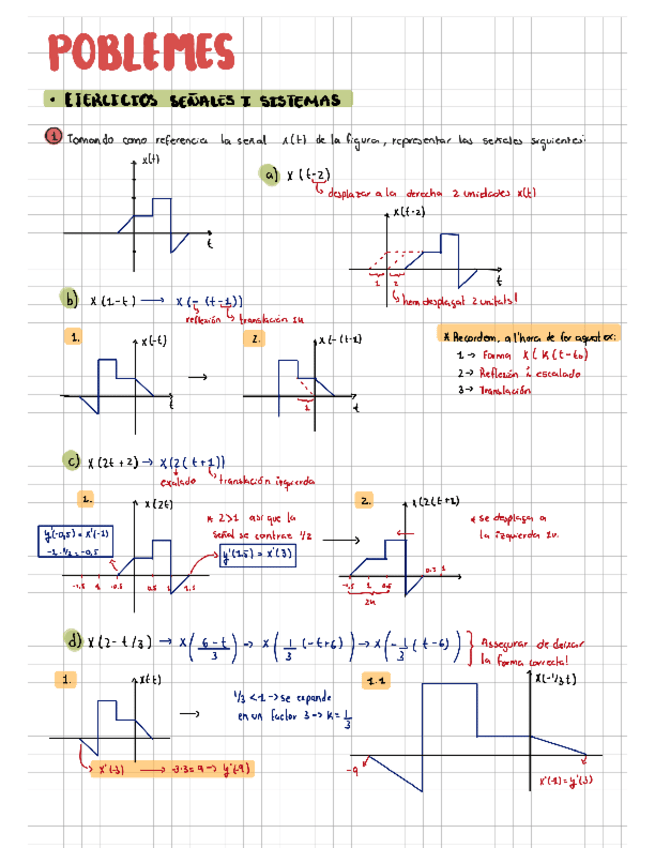 POBLEMES
• EJERCICIOS SEÑALES I SISTEMAS
1 Tomando como referencia la señal x(t) de la figura, representar las señales siguientes:
x(t)
t
a) x(t-2)
desplazar a la derecha 2 unidades x(t)
x(t-2)
1 2
t
hem desplaçat 2 unitats!
b) x(1-t) → x(-(t-1))
reflexión
translación 1u
1.
x(-t)
t
→
2.
x(-(t-1)
1
t
* Recordem, a l'hora de fer aquest ex:
1 → Forma x(k(t-t₀)
2 → Reflexión i escalado
3 → Translación
c) x(2t+2) → x(2(t+1))
escalado
translación izquierda
1.
x(2t)
y'(-0,5) = x'(-1)
-1·1/2 = -0,5
* 2>1 así que la
señal se contrae 1/2
y'(1.5) = x'(3)
-1.5 1 -0.5 0.5 1 1.5
→
2.
x(2(t+1)
* se desplaza a
la izquierda 1u.
-1.5 1 0.5 0.5 1
2u
d) x(2-t/3) → x(6-t/3) → x(1/3(-t+6)) → x(-1/3(t-6))
Assegurar de deixar
la forma correcta!
1.
x(-t)
→
1/3 <1 → se expande
en un factor 3 → k=1/3
x'(-3) → -3·3=9 → y'(-9)
1.1
x(-1/3t)
-9
x'(-1)=y'(3)